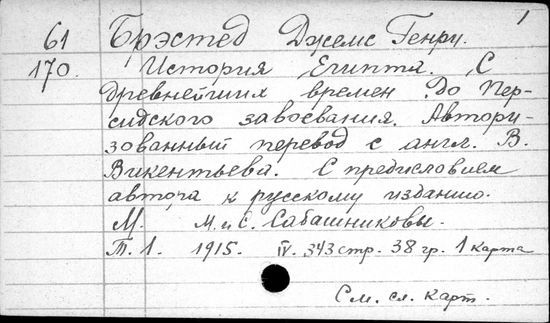 1
61 Брэстед Джемс Генри.
170. История Египта. С
древнейших времен до Пер-
сидского завоевания. Автори-
зованный перевод с англ. В.
Викентьева. С предисловием
автора к русскому изданию.
М. М. и С. Сабашниковы.
Т. 1. 1915. IV. 343 стр. 38 гр. 1 карта
См. сл. карт.